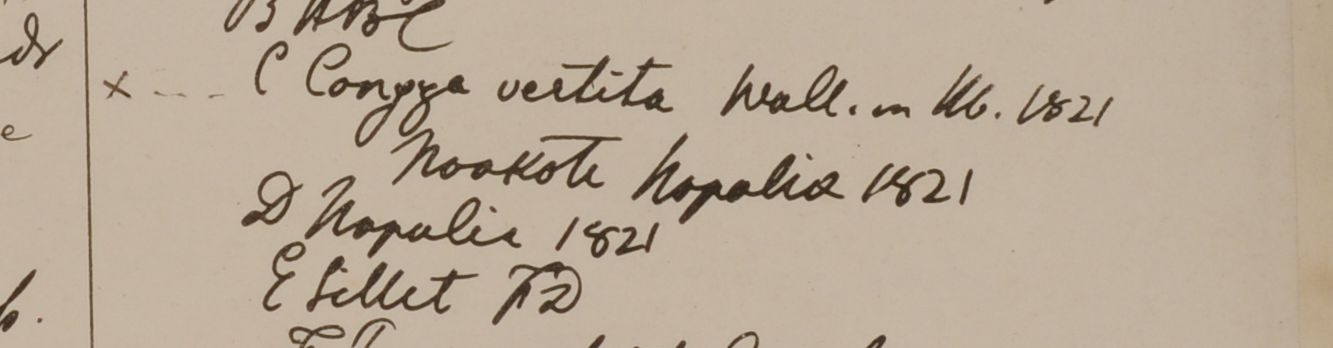 B HBC
C Congea vertita Wall. in Hb. 1821
Noakote Napalia 1821
D Napalia 1821
E Sillet FD